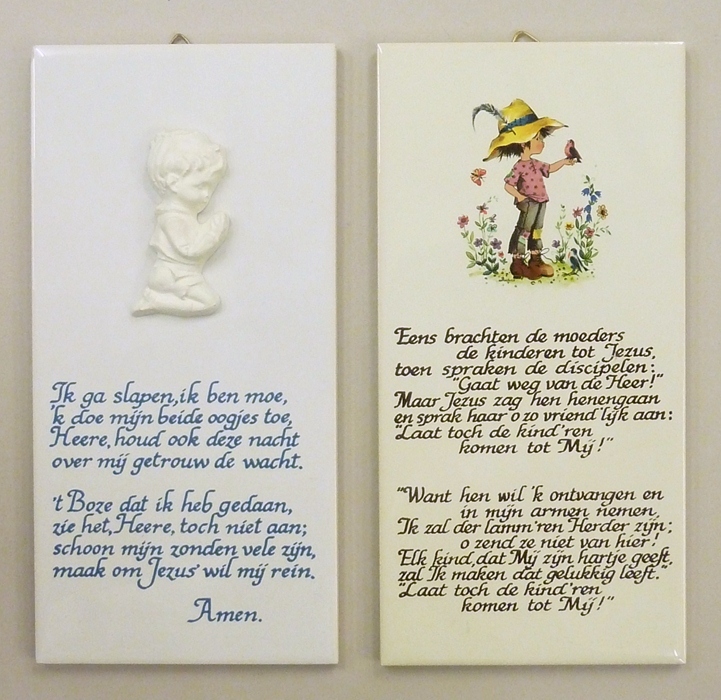 Ik ga slapen, ik ben moe,
'k doe mijn beide oogjes toe,
Heere, houd ook deze nacht
over mij getrouw de wacht.
't Boze dat ik heb gedaan,
zie het, Heere, toch niet aan;
schoon mijn zonden vele zijn,
maak om Jezus' wil mij rein.
Amen.
Eens brachten de moeders
de kinderen tot Jezus,
toen spraken de discipelen:
"Gaat weg van de Heer!"
Maar Jezus zag hen henengaan
en sprak haar o zo vriend'lijk aan:
"Laat toch de kind'ren
komen tot Mij!"
"Want hen wil 'k ontvangen en
in mijn armen nemen,
Ik zal der lamm'ren Herder zijn;
o zend ze niet van hier!
Elk kind, dat Mij zijn hartje geeft,
zal Ik maken dat gelukkig leeft."
"Laat toch de kind'ren
komen tot Mij!"